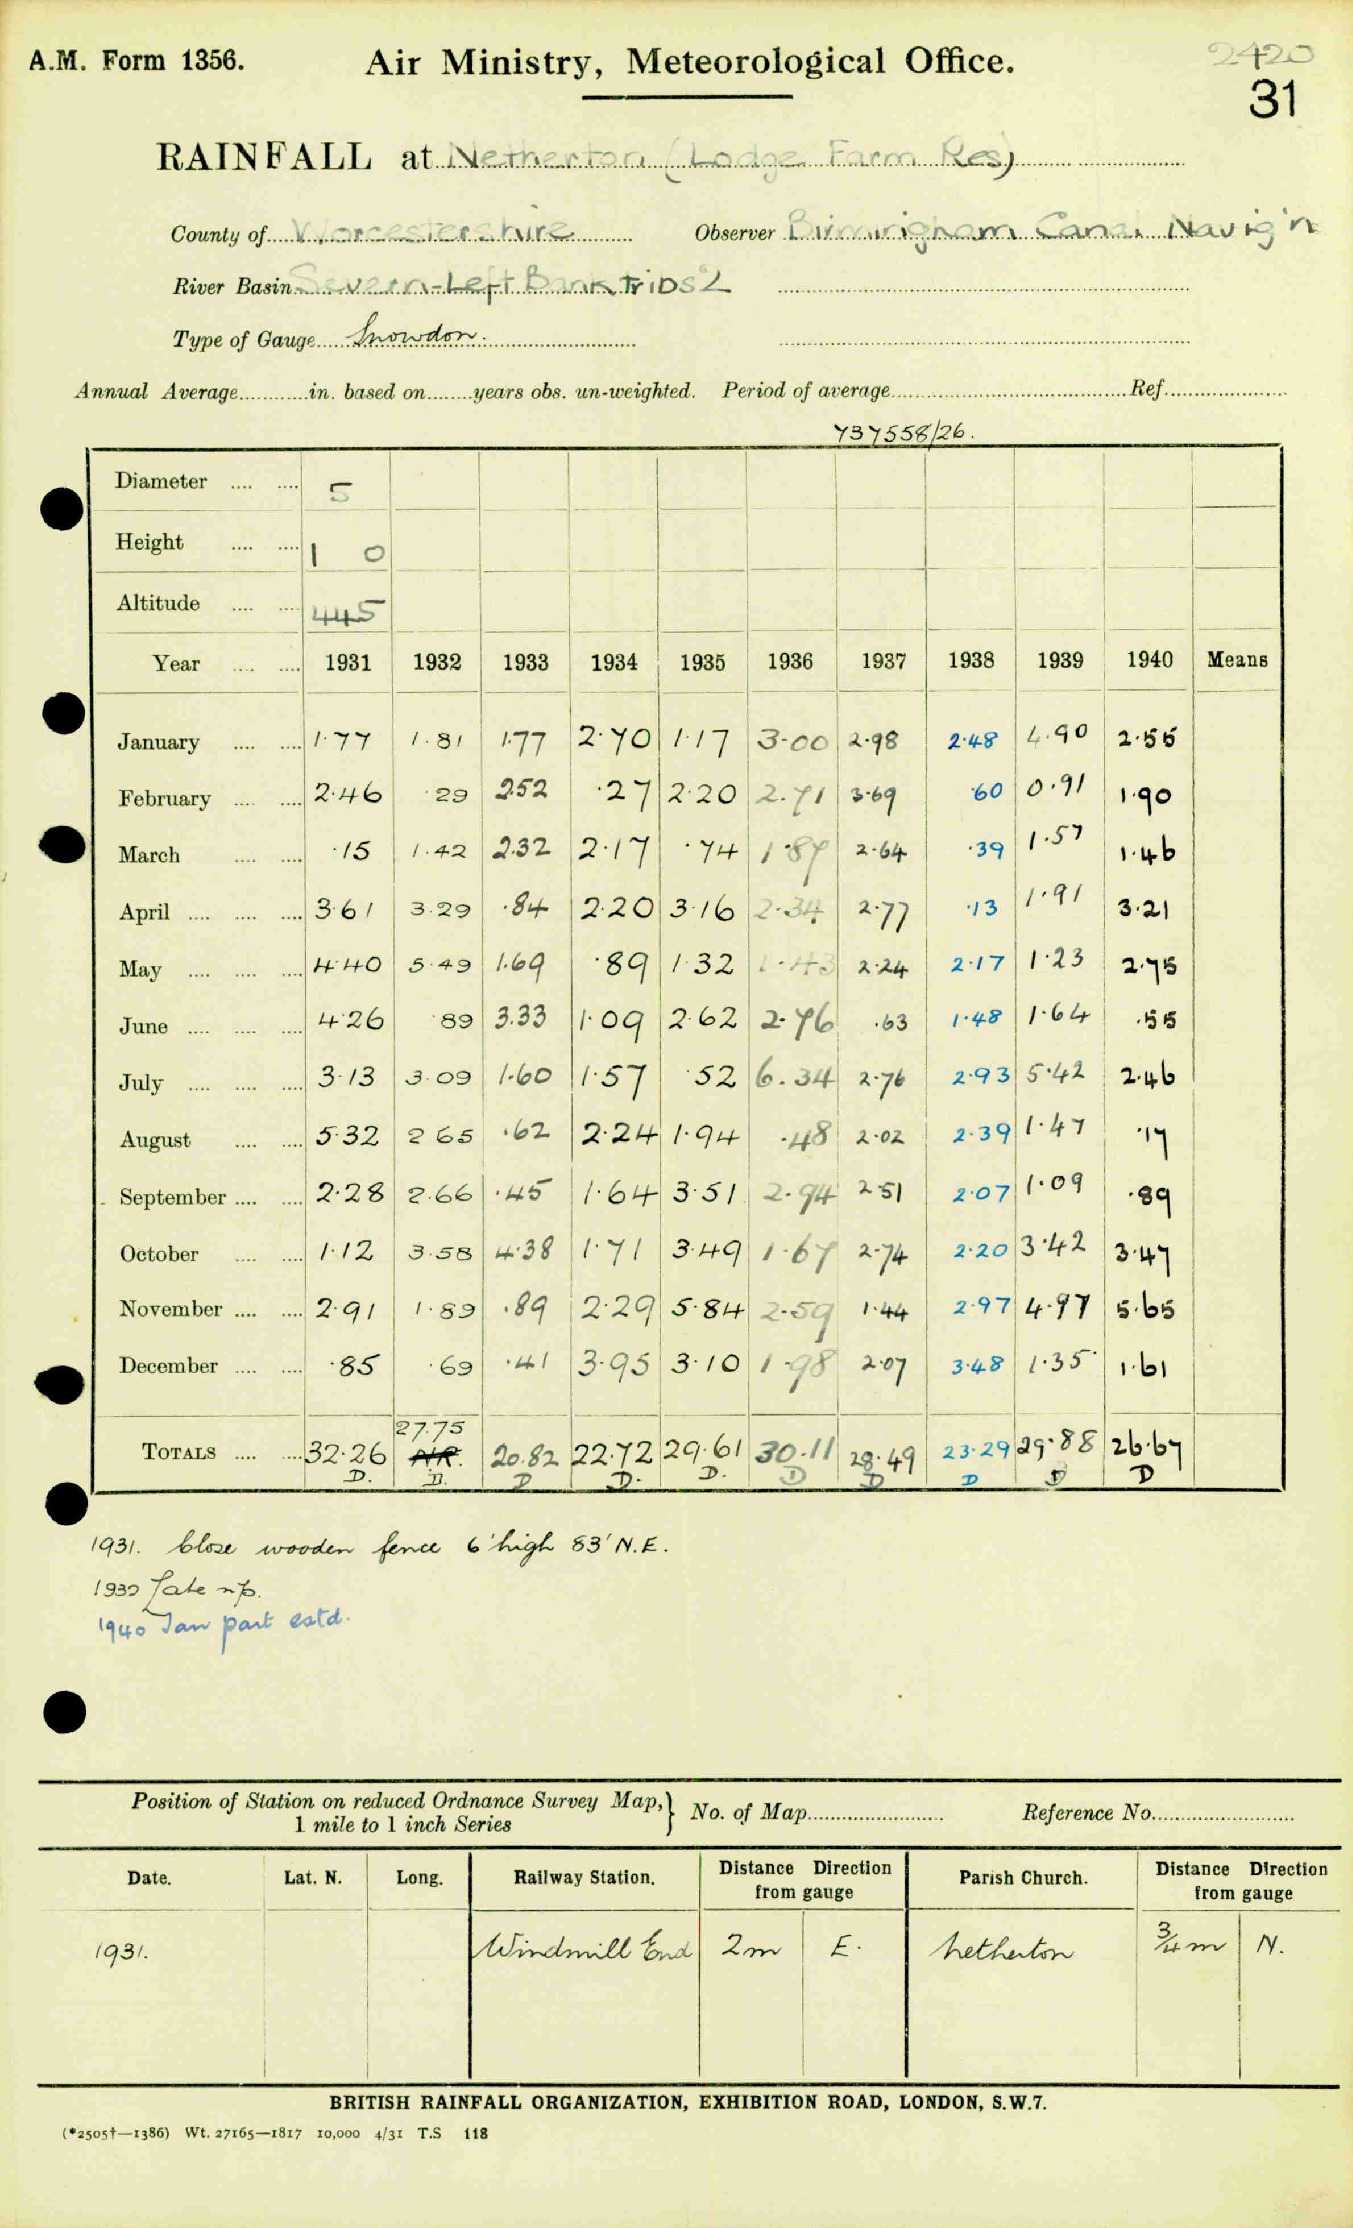 A.M. Form 1356.
Air Ministry, Meteorological Office.
2420
31
RAINFALL at Netherton (Lodge Farm Res)
County of Worcestershire Observer Birmingham Canal Navig'n
River Basin Severn-Left Bank Tribs 2
Type of Gauge Snowdon.
Annual Average in. based on years obs. un-weighted. Period of average Ref.
737558/26.
Diameter 5
Height 1 0
Altitude 445
Year 1931 1932 1933 1934 1935 1936 1937 1938 1939 1940 Means
January 1.77 1.81 1.77 2.70 1.17 3.00 2.98 2.48 4.90 2.55
February 2.46 .29 2.52 .27 2.20 2.71 3.69 .60 0.91 1.90
March .15 1.42 2.32 2.17 .74 1.87 2.64 .39 1.57 1.46
April 3.61 3.29 .84 2.20 3.16 2.34 2.77 .13 1.91 3.21
May 4.40 5.49 1.69 .89 1.32 1.43 2.24 2.17 1.23 2.75
June 4.26 .89 3.33 1.09 2.62 2.76 .63 1.48 1.64 .55
July 3.13 3.09 1.60 1.57 .52 6.34 2.76 2.93 5.42 2.46
August 5.32 2.65 .62 2.24 1.94 .48 2.02 2.39 1.47 .17
September 2.28 2.66 .45 1.64 3.51 2.94 2.51 2.07 1.09 .89
October 1.12 3.58 4.38 1.71 3.49 1.67 2.74 2.20 3.42 3.47
November 2.91 1.89 .89 2.29 5.84 2.59 1.44 2.97 4.97 5.65
December .85 .69 .41 3.95 3.10 1.98 2.07 3.48 1.35 1.61
27.75
TOTALS 32.26 N.R. 20.82 22.72 29.61 30.11 28.49 23.29 29.88 26.67
D. D. D D. D. D D D D D
1931. Close wooden fence 6' high 83' N.E.
1932 Late n/p.
1940 Jan part estd.
Position of Station on reduced Ordnance Survey Map, } No. of Map Reference No.
1 mile to 1 inch Series
Date. Lat. N. Long. Railway Station. Distance Direction from gauge Parish Church. Distance Direction from gauge
1931. Windmill End 2m E. Netherton 3/4 m N.
BRITISH RAINFALL ORGANIZATION, EXHIBITION ROAD, LONDON, S.W.7.
(*2505†—1386) Wt. 27165—1817 10,000 4/31 T.S 118